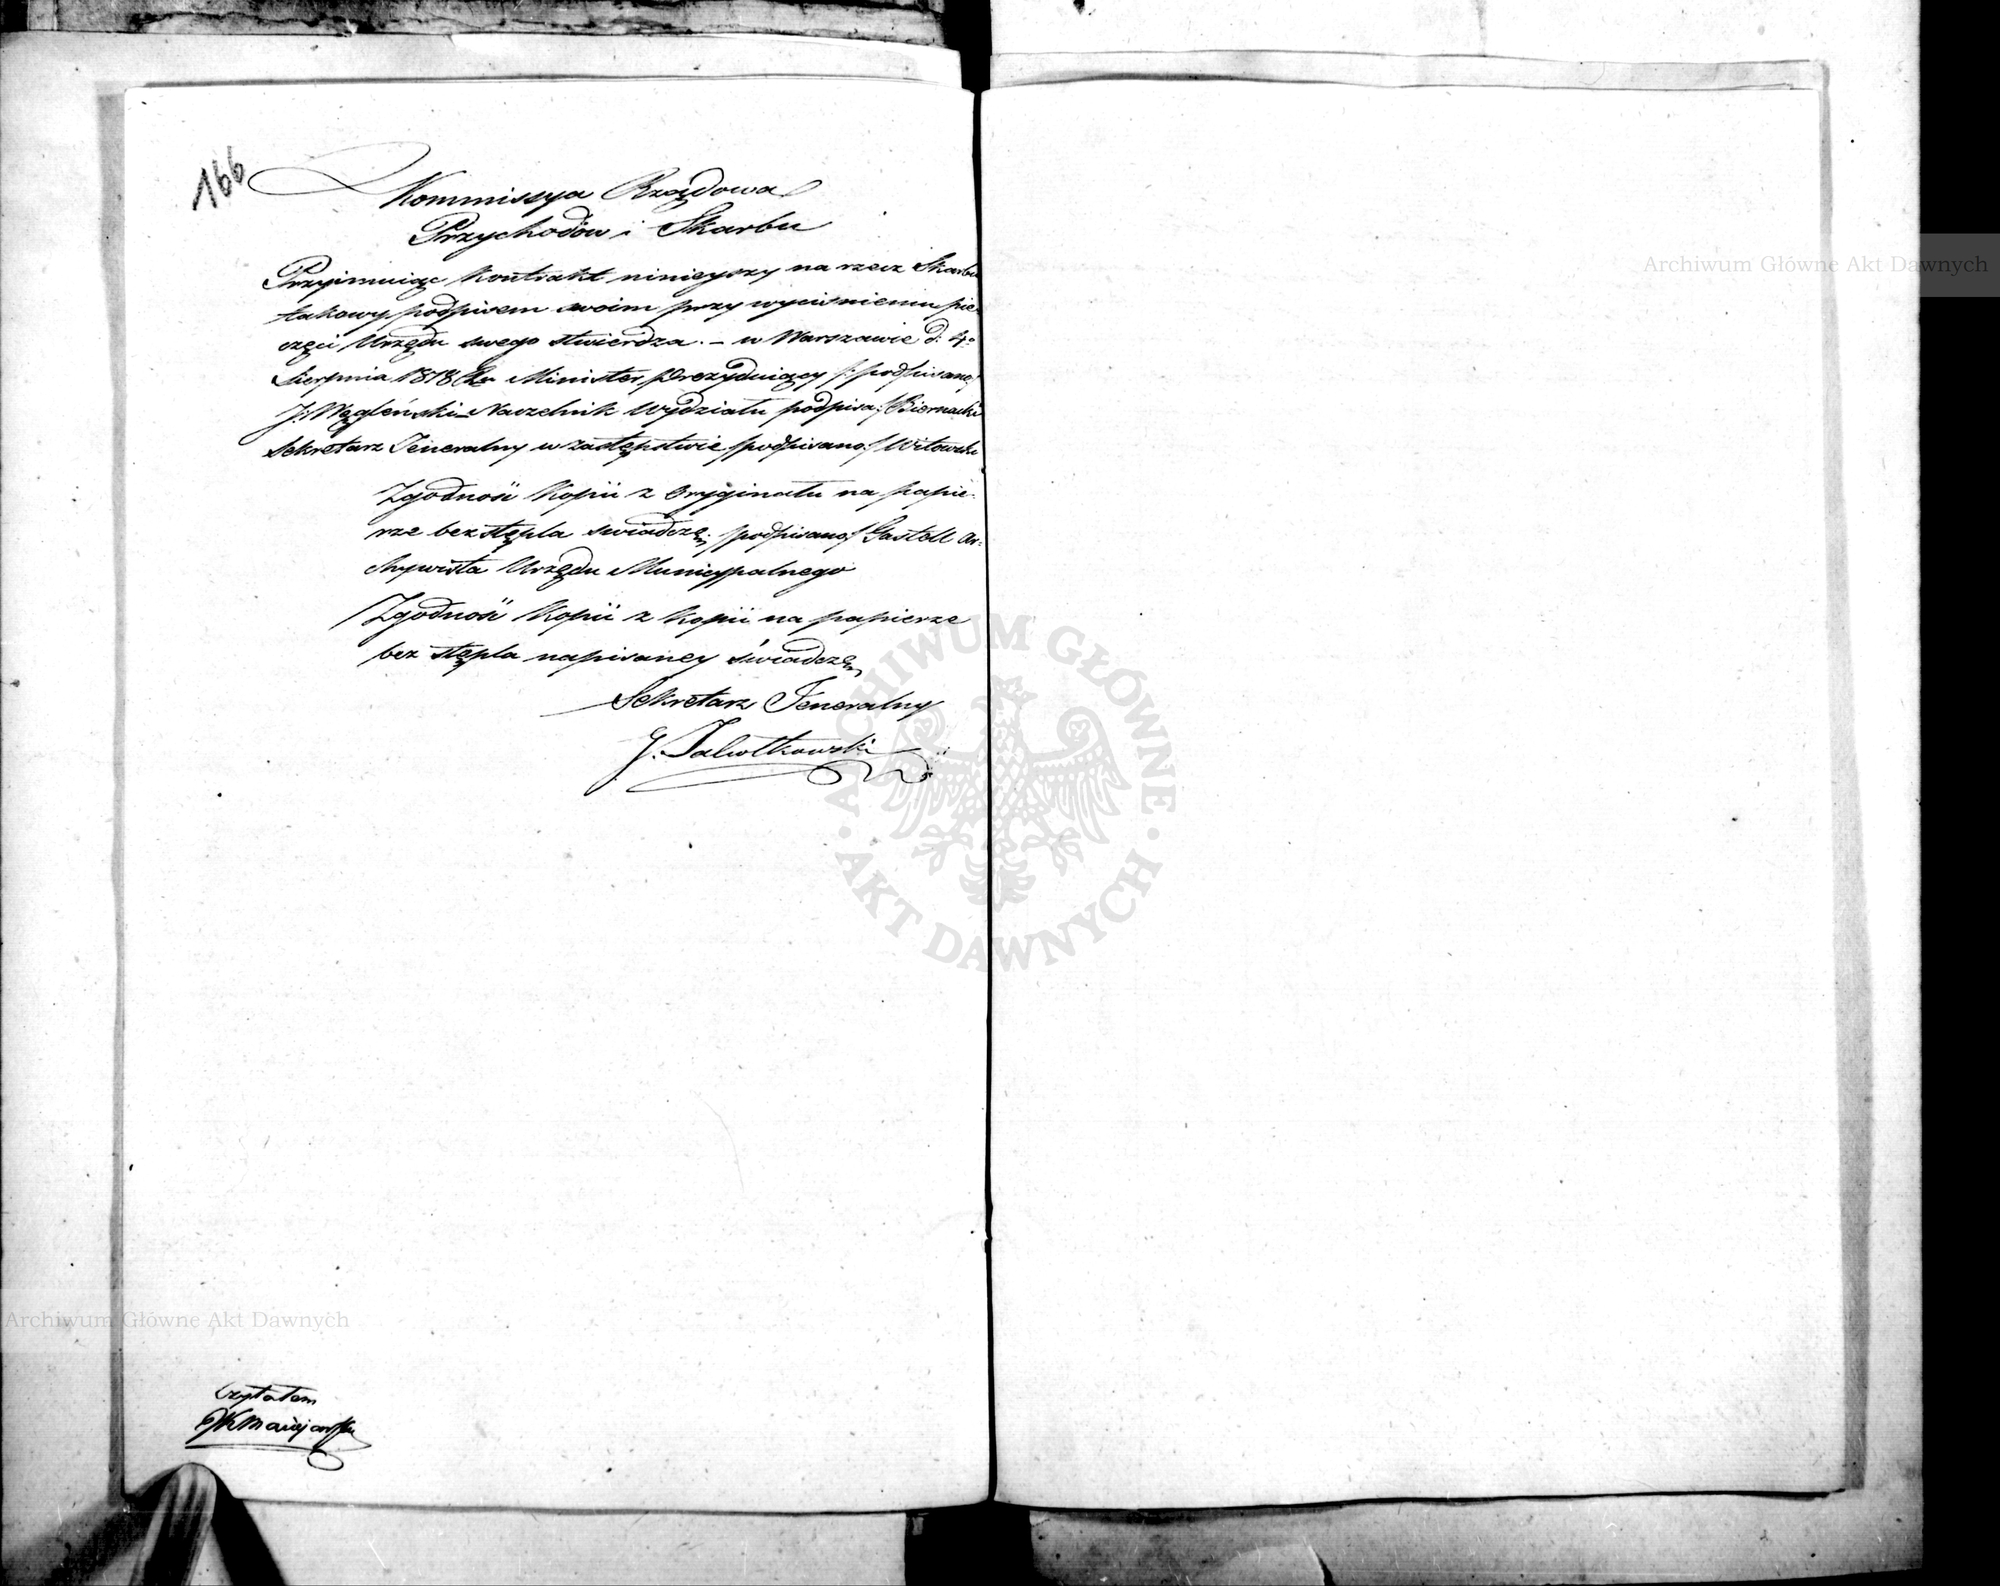 166
Kommissya Rządowa
Przychodów i Skarbu
Przyimuiąc kontrakt ninieyszy na rzecz Skarbu
takowy podpisem swoim przy wyciśnieniu pie-
częci Urzędu swego stwierdza. – w Warszawie d: 4o
Sierpnia 1818 Minister Prezyduiący /: podpisano/
J: Węgleński Naczelnik Wydziału podpisa:/ Biernacki
Sekretarz Jeneralny w zastępstwie /podpisano:/ Witowski
Zgodność Kopii z Oryginału na papie-
rze bez stępla swiadczę: /podpisano/ Gastell Ar-
chywista Urzędu Municypalnego
Zgodność Kopii z kopii na papierze
bez stępla napisaney świadczę
Sekretarz Jeneralny
G. Jahołkowski
Czytałem
Archiwum Główne Akt Dawnych
Archiwum Główne Akt Dawnych
ARCHIWUM GŁÓWNE · AKT DAWNYCH ·